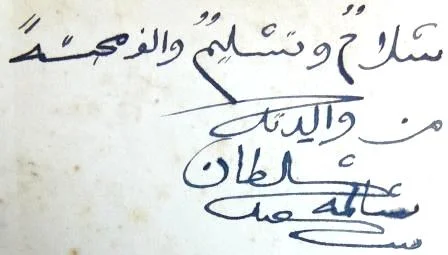 سلامٌ وتسليمٌ والف محبةً
من والدتك
سلطان
سالمه